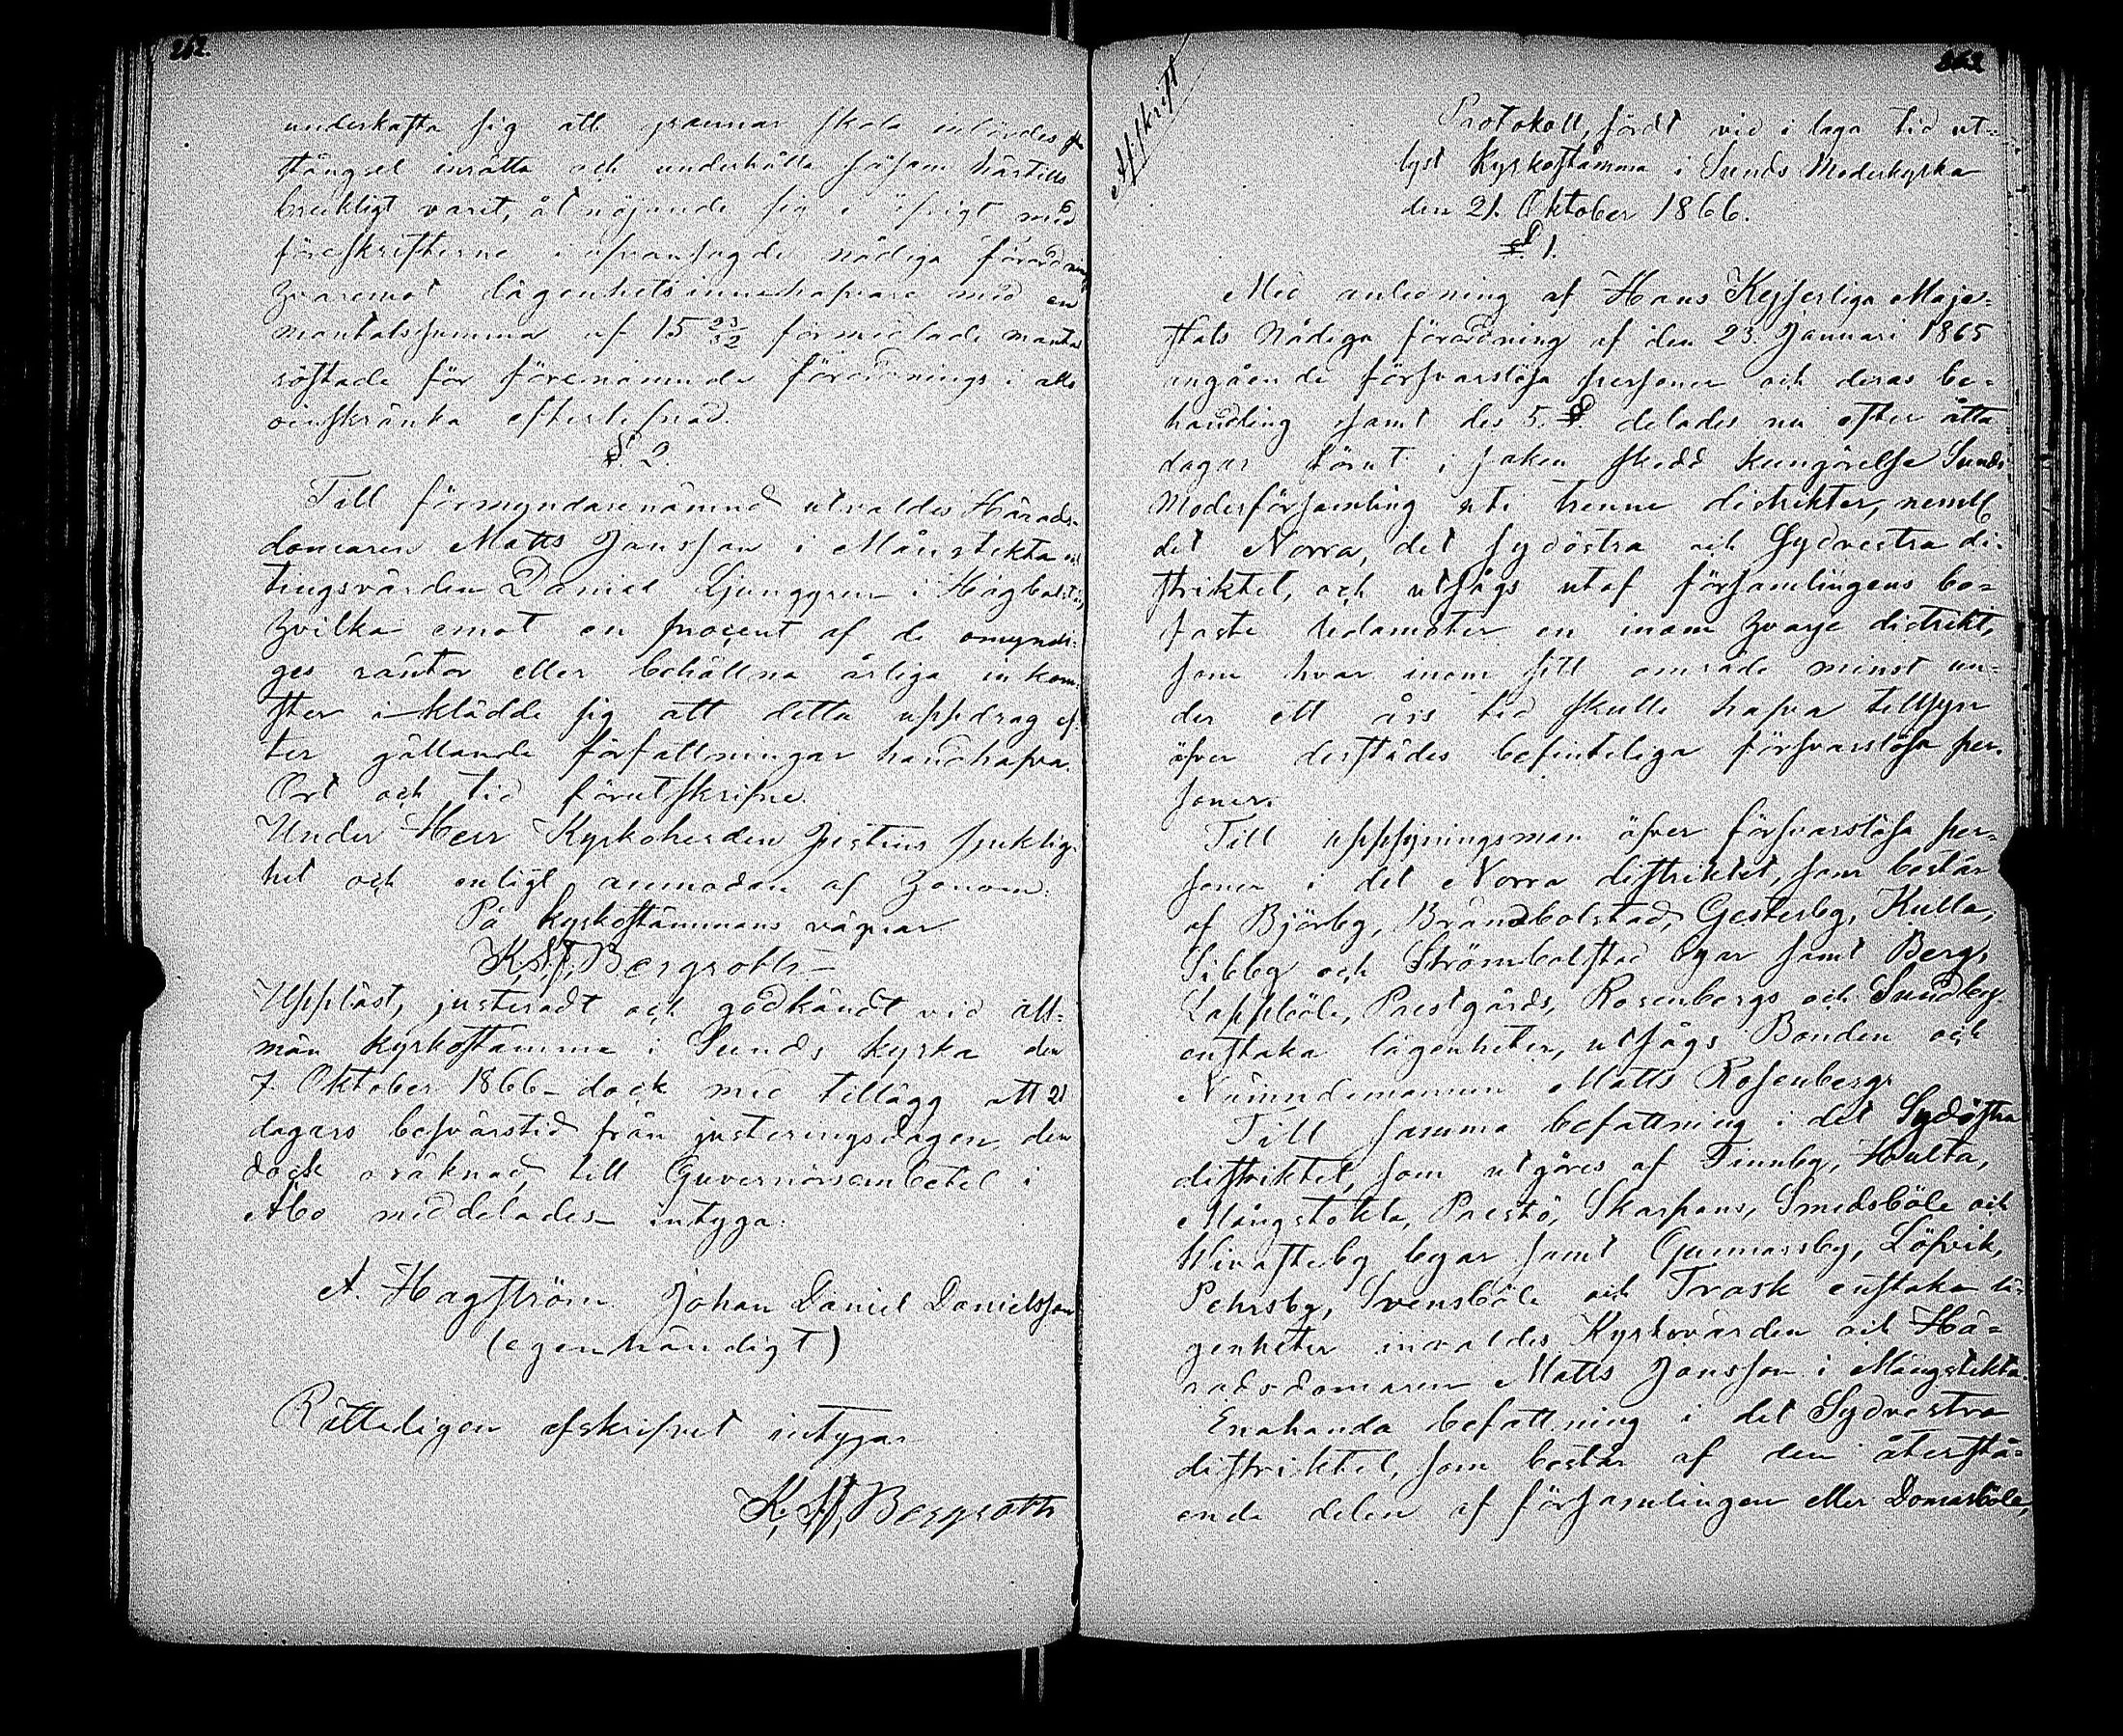 262.
underkasta sig att grannar skola emellan
stängsel inrätta och underhålla såsom härtills
brukligt varit, åtnöjande sig i öfrigt med
föreskrifterne i ofvansagde nådiga förordning
hvaremot lägenhetsinnehafvare med en
mantalssumma af 15 23/32 förmedlade mantal
röstade för förenämnde förordnings i allo
oinskränka efterlefnad.
§. 2.
Till förmyndarenämnd utvaldes Härads-
domaren Matts Jansson i Mångstekta och
tingsvärden Daniel Ljunggren i Högbolstad,
hvilka emot en procent af de omyndi-
ges räntor eller behållna årliga inkom-
ster iklädde sig att detta uppdrag ef-
ter gällande författningar handhafva.
Ort och tid förutskrifne.
Under Herr Kyrkoherden Justins sjuklig-
het och enligt anmodan af honom:
På kyrkostämmans vägnar
K. S. J. Bergroth
Uppläst, justeradt och godkändt vid all-
män kyrkostämma i Sunds kyrka den
7. Oktober 1866 – dock med tillägg att 21
dagars besvärstid från justeringsdagen, den
dock oräknad, till Guvernörsembetet i
Åbo meddelades – intyga:
A. Hagström Johan Daniel Danielsson
(egenhändigt)
Rätteligen afskrifvet intygar
K. S. J. Bergroth
263
Afskrift
Protokoll, fördt vid i laga tid ut-
lyst Kyrkostämma i Sunds Moderkyrka
den 21. Oktober 1866.
§. 1.
Med anledning af Hans Kejserliga Maje-
stäts Nådiga förordning af den 23. Januari 1865
angående försvarslösa personer och deras be-
handling samt des 5. §. delades nu efter åtta
dagar förut i saken skedd kungörelse Sunds
Moderförsamling uti trenne distrikter, neml.
det Norra, det sydöstra och Sydvestra di-
striktet, och utsågs utaf församlingens bo-
faste ledamöter en inom hvarje distrikt,
som hvar inom sitt område minst un-
der ett års tid skulle hafva tillsyn
öfver derstädes befinteliga försvarslösa per-
soner.
Till uppsyningsman öfver försvarslösa per-
soner i det Norra distriktet, som består
af Björby, Brändbolstad, Gesterby, Kulla,
Sibby och Strömbolstad byar samt Bergs,
Lappböle, Prestgårds, Rosenbergs och Sundby
enstaka lägenheter, utsågs Bonden och
Nämndemannen Matts Rosenberg.
Till samma befattning i det Sydöstra
distriktet, som utgöres af Finnby, Hulta,
Mångstekta, Prestö, Skarpans, Smedsböle och
Wivasteby byar samt Gunnarsby, Löfvik,
Pehrsby, Svensböle och Trask enstaka lä-
genheter invaldes Kyrkovärden och Hä-
radsdomaren Matts Jansson i Mångstekta.
Enahanda befattning i det Sydvestra
distriktet, som består af den återstå-
ende delen af församlingen eller Domarböle,